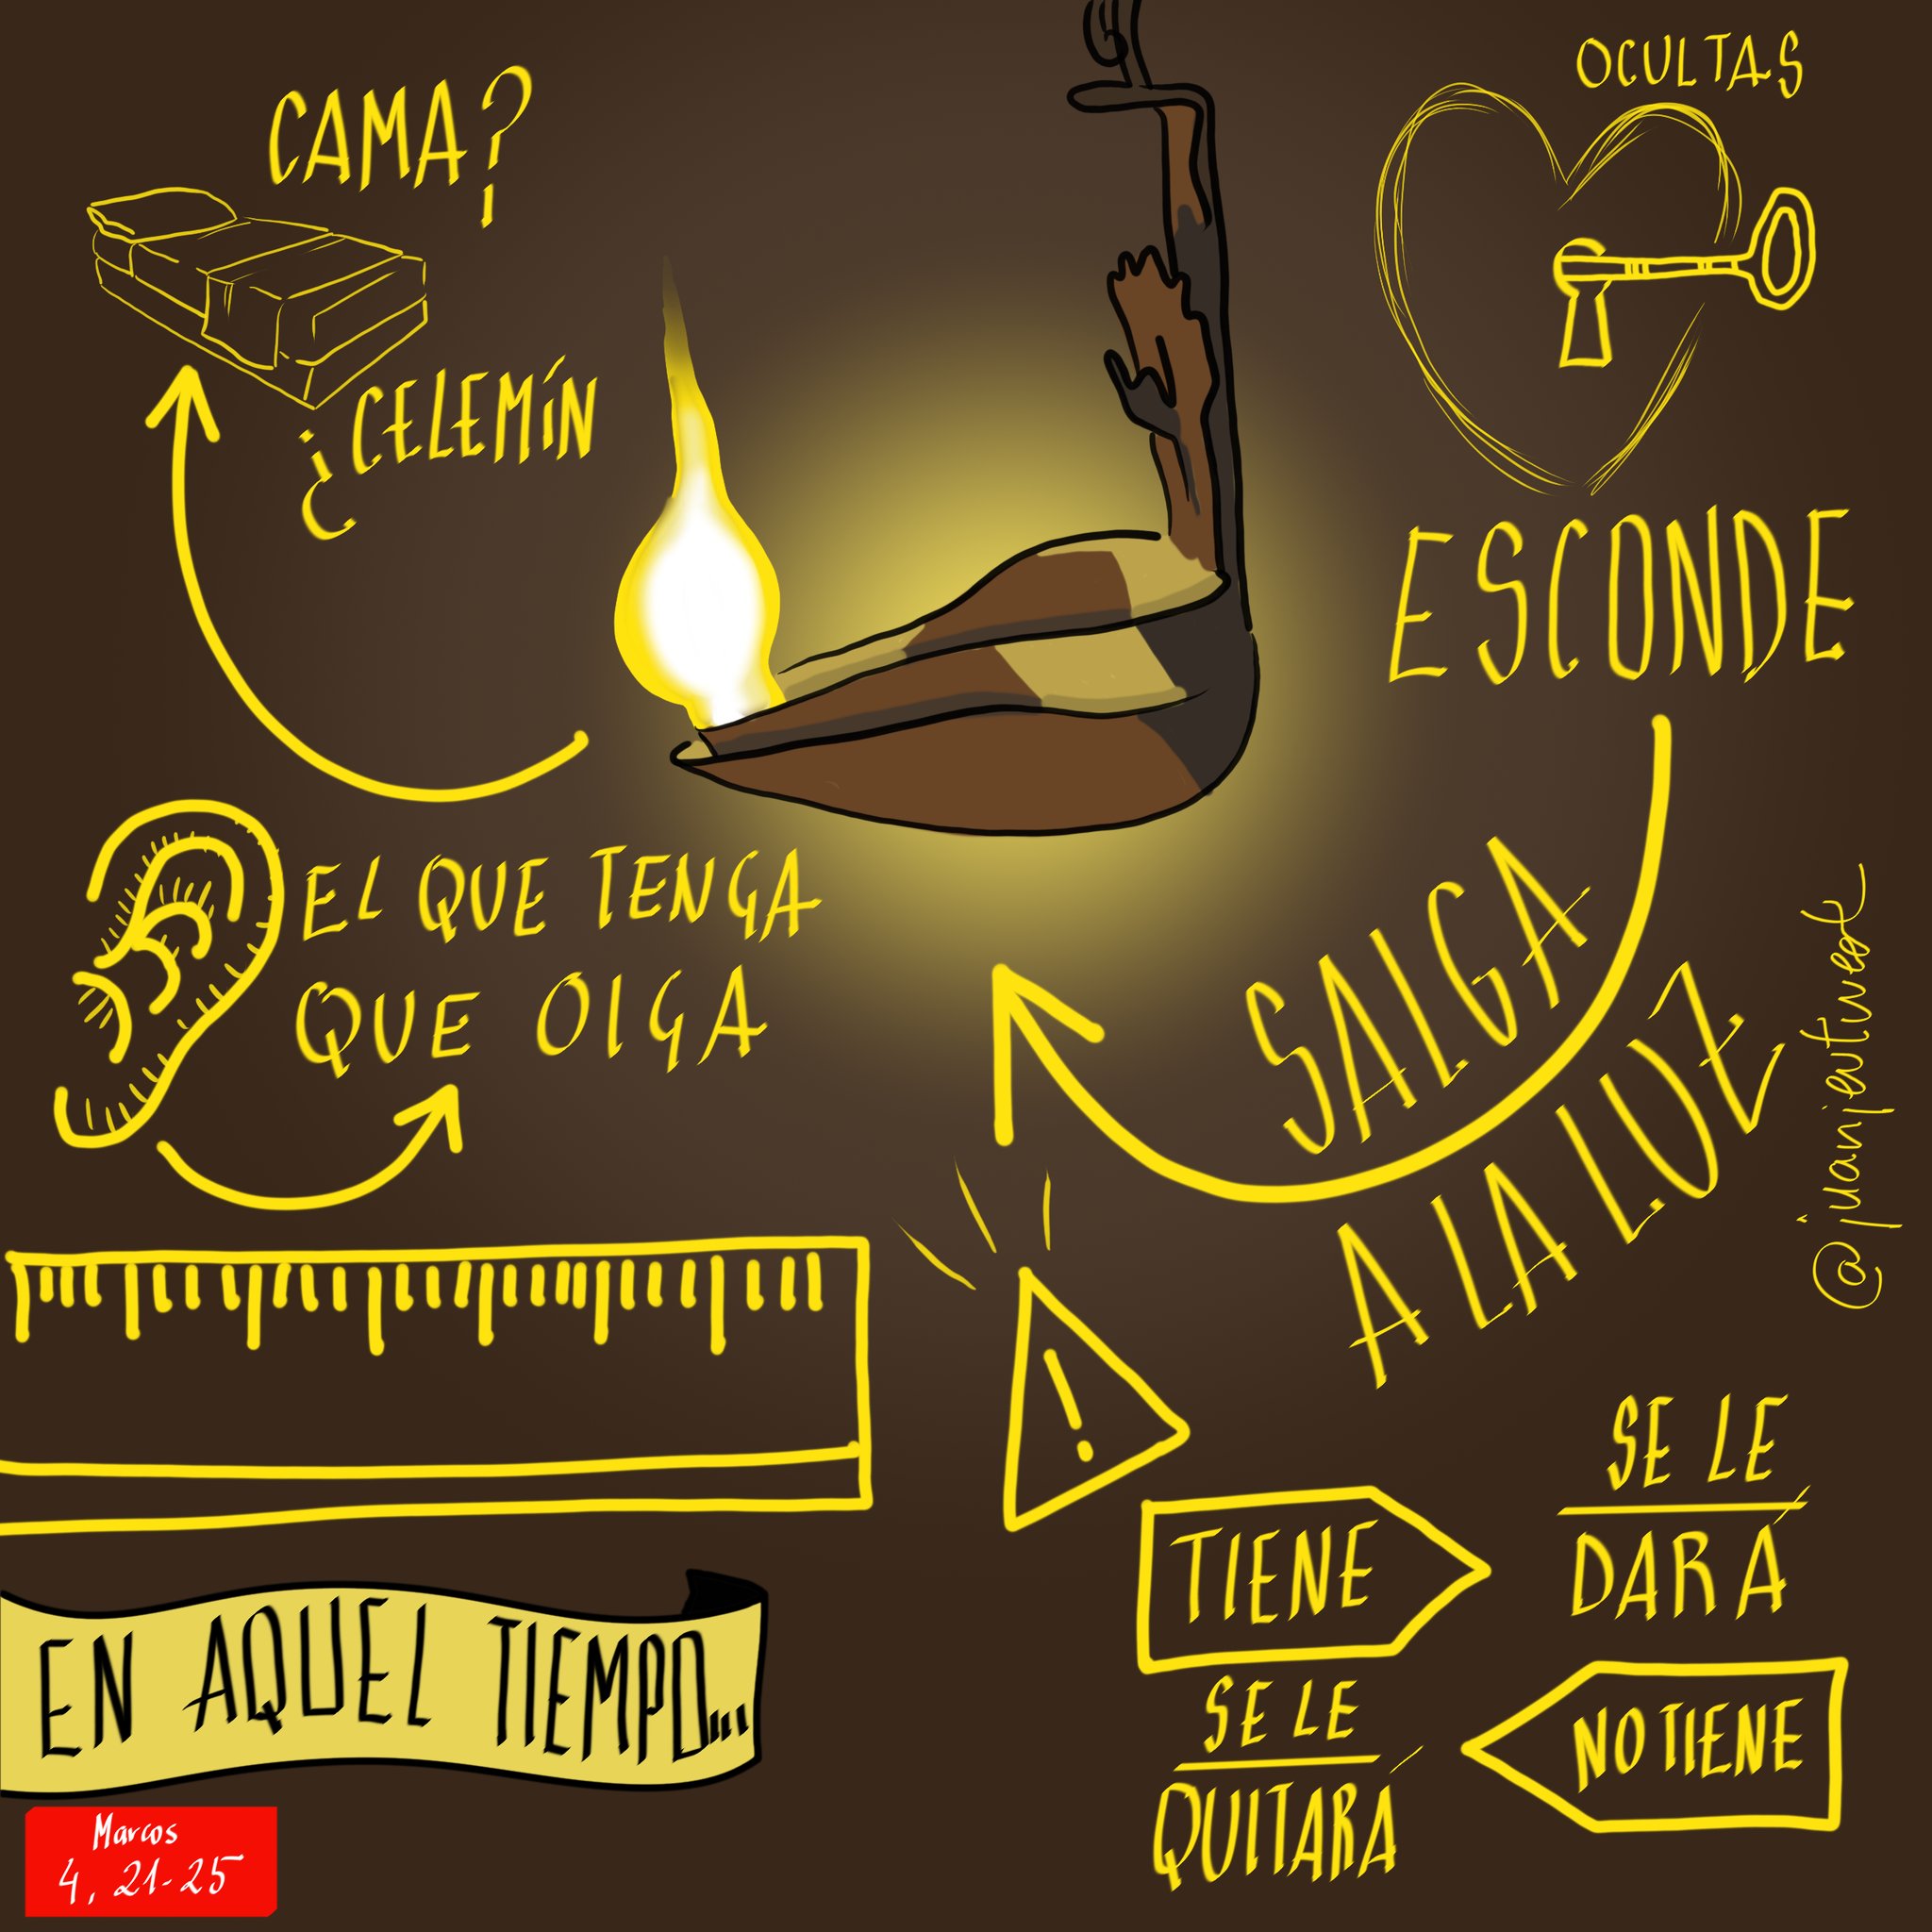 CAMA?
¿CELEMÍN
OCULTAS
ESCONDE
SALGA
A LA LUZ
EL QUE TENGA
QUE OIGA
@juanjeatweet
TIENE
SE LE
DARÁ
NO TIENE
SE LE
QUITARÁ
EN AQUEL TIEMPO...
Marcos
4, 21-25